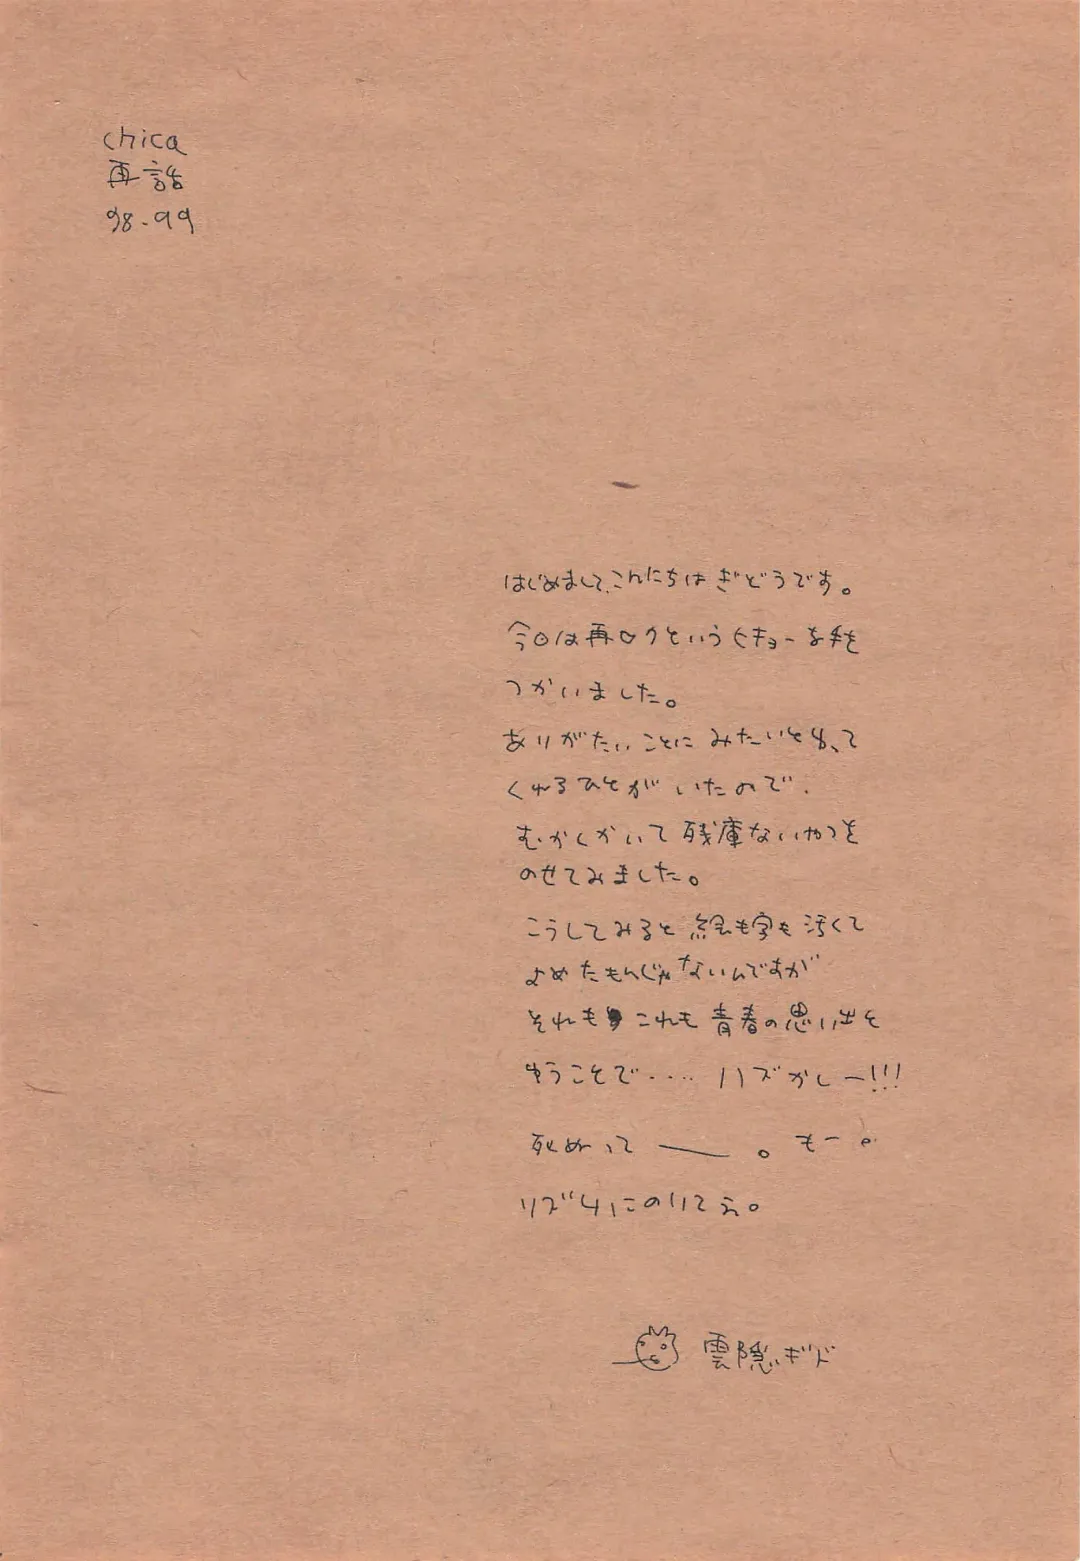 chica
再話
98-99
はじめまして、こんにちは ぎどうです。
今回は再ロクというヒキョーな手を
つかいました。
ありがたいことに みたいと言って
くれるひとが いたので、
むかしかいて 残庫ないやつを
のせてみました。
こうしてみると 絵も字も 汚くて
よめたもんじゃないんですが
それも これも 青春の思い出と
ゆうことで‥‥ ハズかしー!!!
死ぬって ー。もー。
リズムにのりてえ。
雲隠ギド